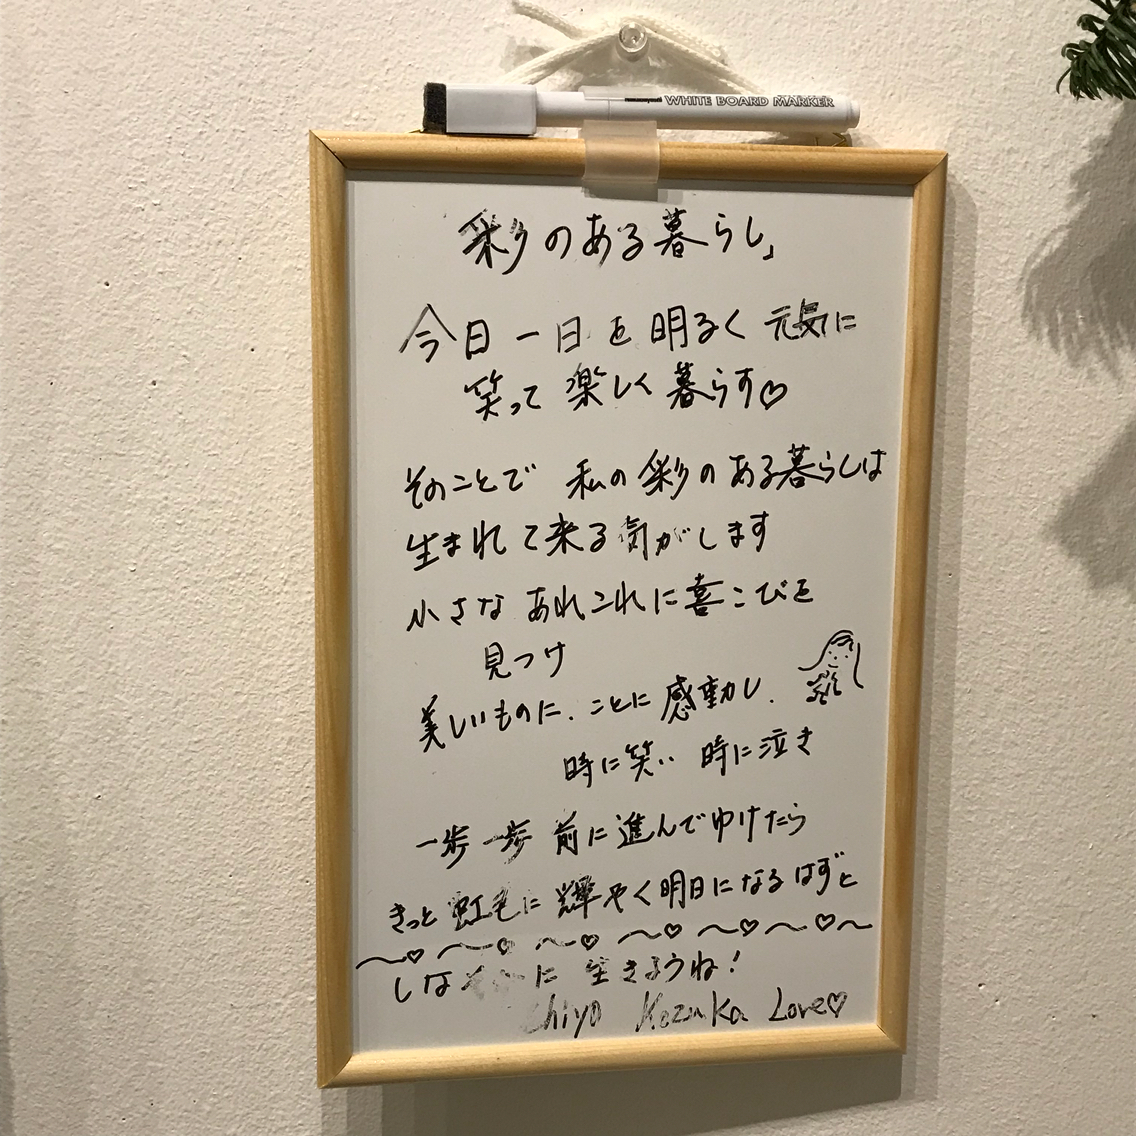 WHITE BOARD MARKER
彩のある暮らし」
今日一日を明るく元気に
笑って楽しく暮らす♡
そのことで 私の彩のある暮らしは
生まれて来る気がします
小さな あれこれに喜こびを
見つけ
美しいものに、ことに感動し、
時に笑い 時に泣き
一歩一歩 前に進んでゆけたら
きっと 虹色に 輝やく明日になるはずと
〜♡〜♡〜♡〜♡〜♡〜♡〜
しな に 生きようね!
Chiyo Kozuka Love♡